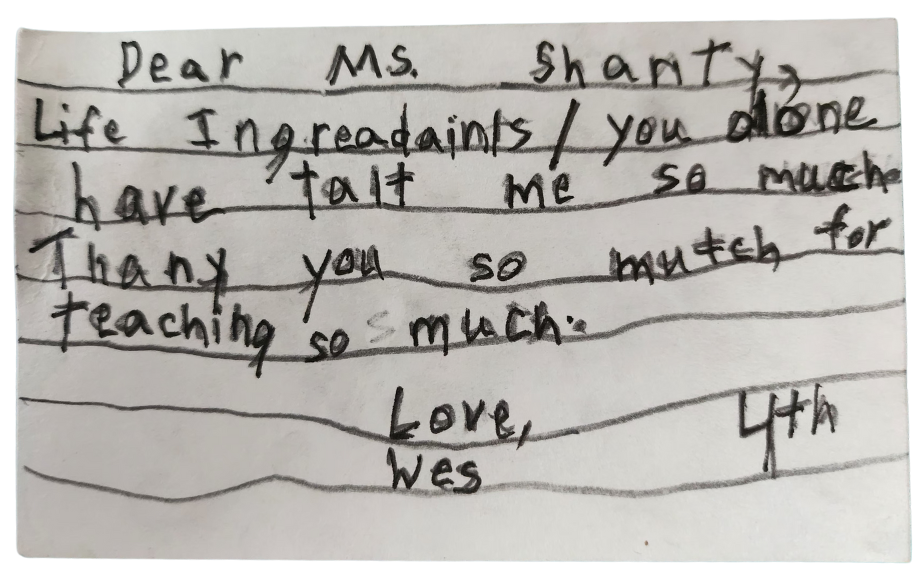 Dear Ms. Shanty,
Life Ingreadaints / you alone
have talt me so much
Thany you so mutch for
teaching so much.
Love, 4th
Wes